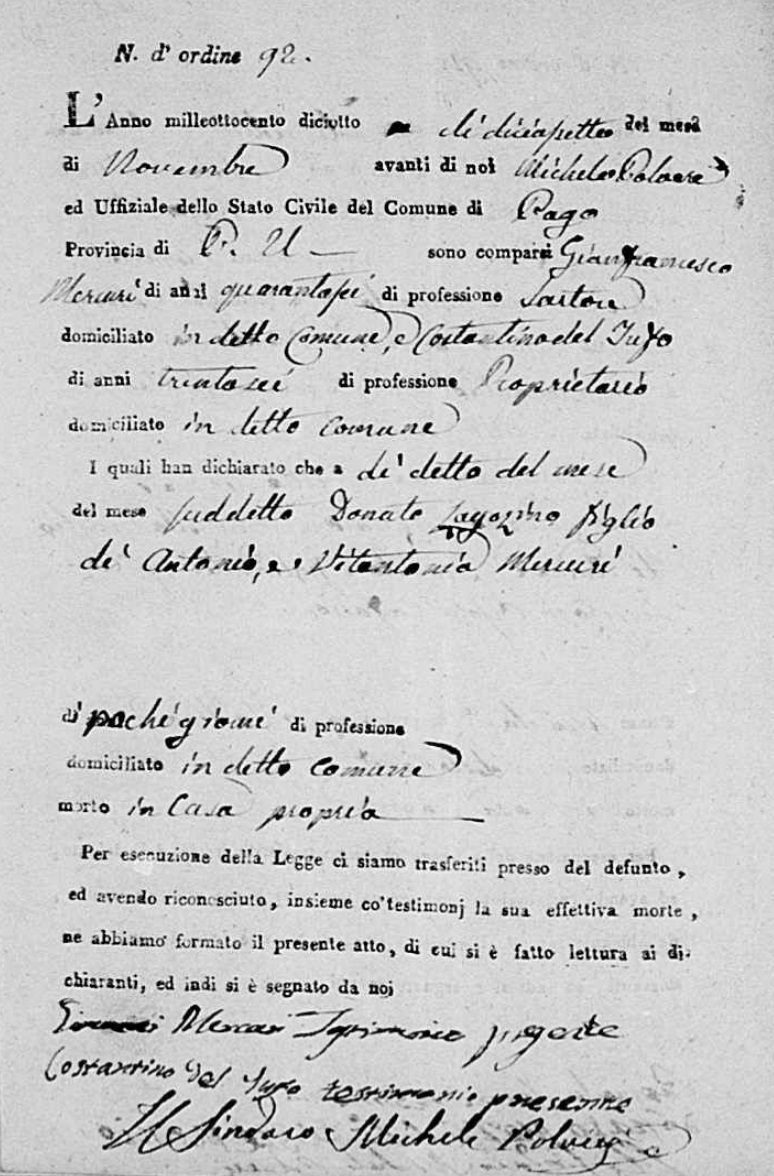 N. d' ordine 92.
L'Anno milleottocento diciotto a dì diciasette del mese
di Novembre avanti di noi Michele Polvere
ed Uffiziale dello Stato Civile del Comune di Pago
Provincia di P. U sono comparsi Gianfrancesco
Mercuri di anni quarantasei di professione Sartore
domiciliato in detto Comune, e Costantino del Tufo
di anni trentasei di professione Proprietario
domiciliato in detto comune
I quali han dichiarato che a dì detto del mese
del mese suddetto Donato figlio
di Antonio, e Vitantonia Mercuri
di pochi giorni di professione
domiciliato in detto comune
morto in Casa propria
Per esecuzione della Legge ci siamo trasferiti presso del defunto,
ed avendo riconosciuto, insieme co'testimonj la sua effettiva morte,
ne abbiamo formato il presente atto, di cui si è fatto lettura ai di-
chiaranti, ed indi si è segnato da noi
Mercuri
Costantino del Tufo testimonio presente
Il Sindaco Michele Polvere